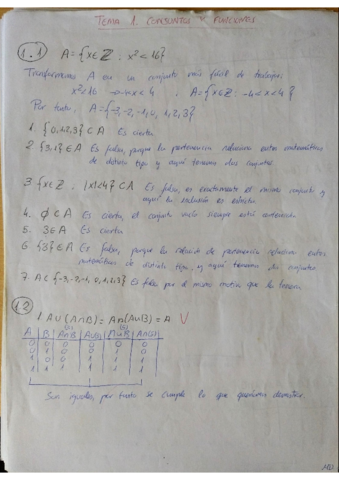 TEMA 1. CONJUNTOS Y FUNCIONES
1.1 A = {x∈Z : x² < 16}
Transformamos A en un conjunto más fácil de trabajar
x² < 16 → -4 < x < 4 . A = {x∈Z : -4 < x < 4}
Por tanto, A = {-3,-2,-1,0,1,2,3}
1. {0,1,2,3} ⊂ A Es cierta
2. {3,1} ∈ A Es falso, porque la pertenencia relaciona entes matemáticos
de distinto tipo y aquí tenemos dos conjuntos.
3 {x∈Z : |x|<4} ⊂ A Es falso, es exactamente el mismo conjunto y
aquí la inclusión es estricta.
4. ∅ ⊂ A Es cierta, el conjunto vacío siempre está contenido.
5. 3 ∈ A Es cierta.
6 {3} ∈ A Es falso, porque la relación de pertenencia relaciona entes
matemáticos de distinto tipo, y aquí tenemos dos conjuntos.
7. A ⊂ {-3,-2,-1,0,1,2,3} Es falso por el mismo motivo que la tercera
1.2
1 A∪(A∩B) = A∩(A∪B) = A V
A B A∩B A∪B
0 0 0 0 0 0
0 1 0 1 0 0
1 0 0 1 1 1
1 1 1 1 1 1
Son iguales, por tanto se cumple lo que queríamos demostrar.